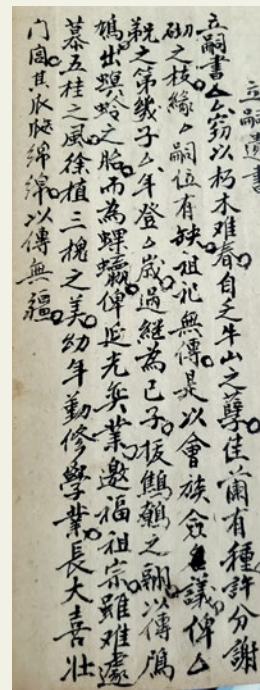 立嗣遺書
立嗣書厶厶窃以朽木难春自乏牛山之孽佳蘭有種許分謝
砌之枝緣厶嗣位有缺祖祀無傳是以會族僉議俾厶
親之第幾子厶年登厶歲過継為已子扳鶺鴒之翮以傳鴈
鳩出螟蛉之胎而為螺蠃俾延光奕業邀福祖宗雖难遽
慕五桂之風徐植三槐之美幼年勤修學業長大喜壮
门閭其瓜瓞綿綿以傳無疆